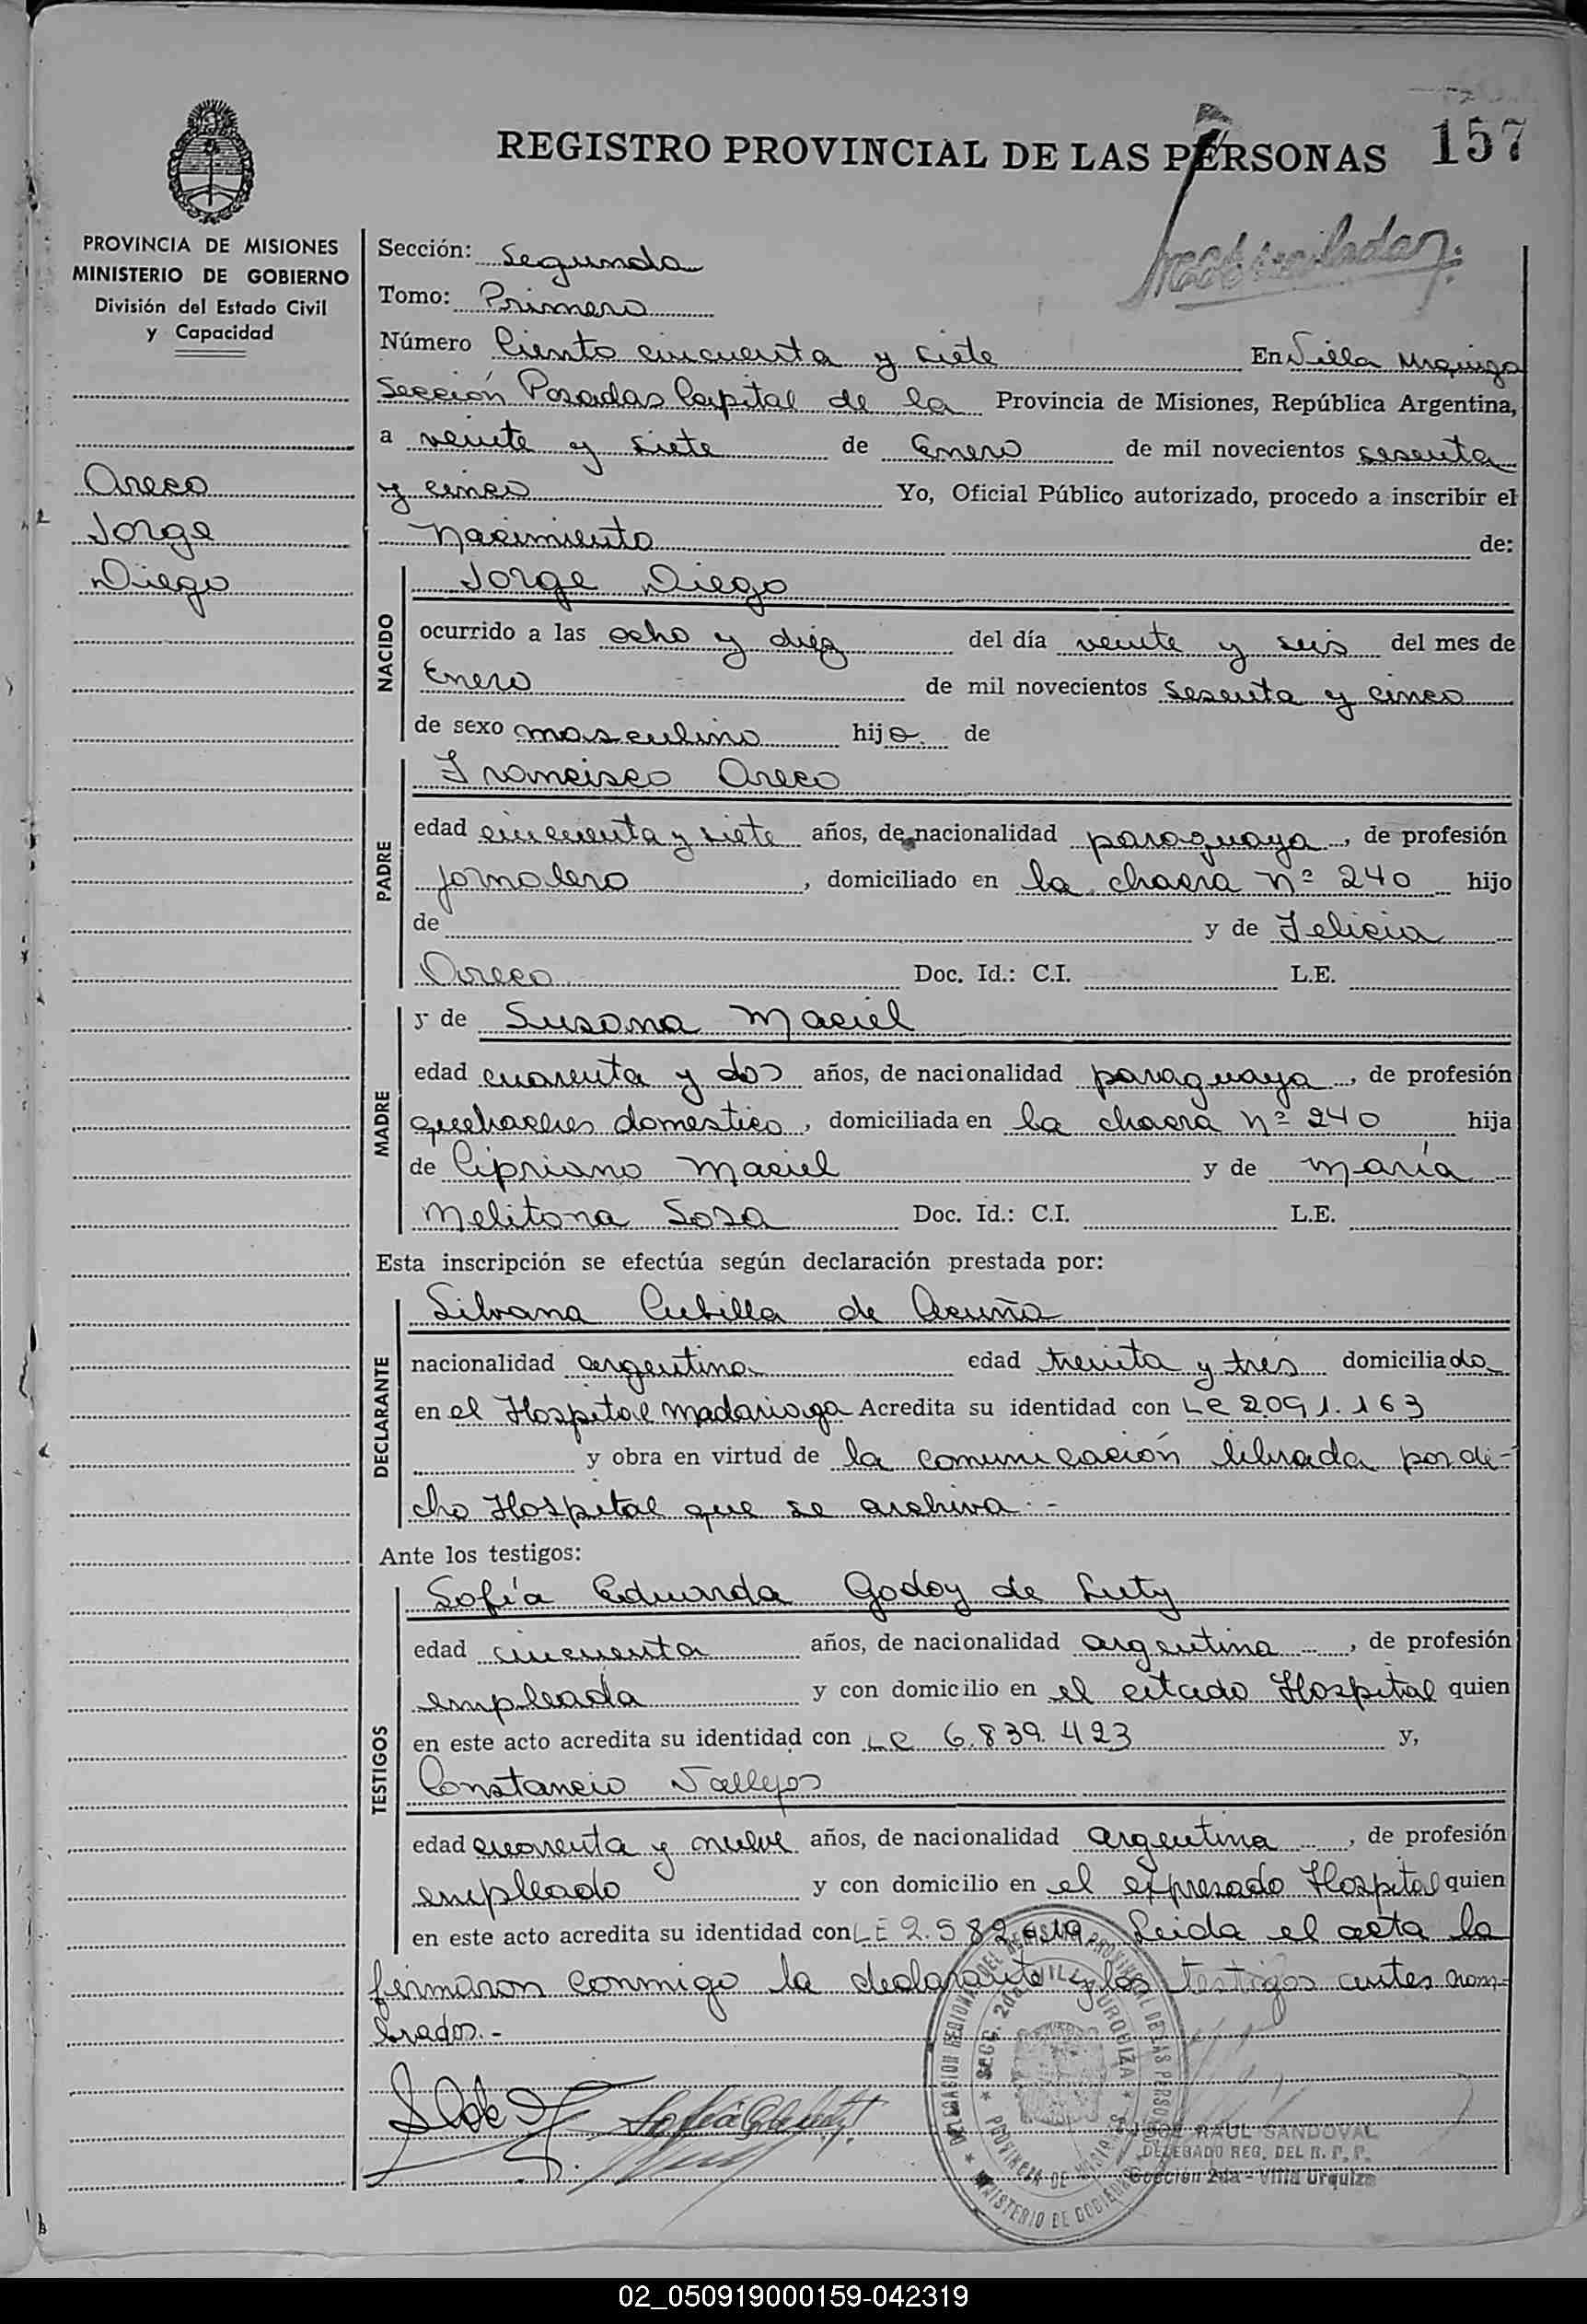 REGISTRO PROVINCIAL DE LAS PERSONAS 157
PROVINCIA DE MISIONES
MINISTERIO DE GOBIERNO
División del Estado Civil
y Capacidad
Areco
Jorge
Diego
Sección: Segunda
Tomo: Primero
Número Ciento cincuenta y siete En Villa Urquiza
Sección Posadas Capital de la Provincia de Misiones, República Argentina,
a veinte y siete de Enero de mil novecientos sesenta
y cinco Yo, Oficial Público autorizado, procedo a inscribir el
Nacimiento de:
NACIDO
Jorge Diego
ocurrido a las ocho y diez del día veinte y seis del mes de
Enero de mil novecientos sesenta y cinco
de sexo masculino hijo de
PADRE
Francisco Areco
edad cincuenta y siete años, de nacionalidad paraguaya, de profesión
jornalero, domiciliado en la chacra nº 240 hijo
de y de Felicia
Areco Doc. Id.: C.I. L.E.
MADRE
y de Susana Maciel
edad cuarenta y dos años, de nacionalidad paraguaya, de profesión
quehaceres domestico, domiciliada en la chacra nº 240 hija
de Cipriano Maciel y de María
Melitona Sosa Doc. Id.: C.I. L.E.
Esta inscripción se efectúa según declaración prestada por:
DECLARANTE
Silvana Cubilla de Acuña
nacionalidad argentina edad treinta y tres domiciliada
en el Hospital Madariaga Acredita su identidad con LC 2.091.163
y obra en virtud de la comunicación librada por di-
cho Hospital que se archiva.-
Ante los testigos:
TESTIGOS
Sofía Eduarda Godoy de Luty
edad cincuenta años, de nacionalidad argentina, de profesión
empleada y con domicilio en el citado Hospital quien
en este acto acredita su identidad con LC 6.839.423 y,
Constancio Vallejos
edad cuarenta y nueve años, de nacionalidad argentina, de profesión
empleado y con domicilio en el expresado Hospital quien
en este acto acredita su identidad con LE Leida el acta la
firmaron conmigo la declarante y los testigos antes nom-
brados.-
DELEGACION REGIONAL DEL REGISTRO PROVINCIAL DE LAS PERSONAS
SECC. 2da. VILLA URQUIZA
PROVINCIA DE MISIONES
MINISTERIO DE GOBIERNO
JOSE RAUL SANDOVAL
DELEGADO REG. DEL R. P. P.
Sección 2da - Villa Urquiza
02_050919000159-042319